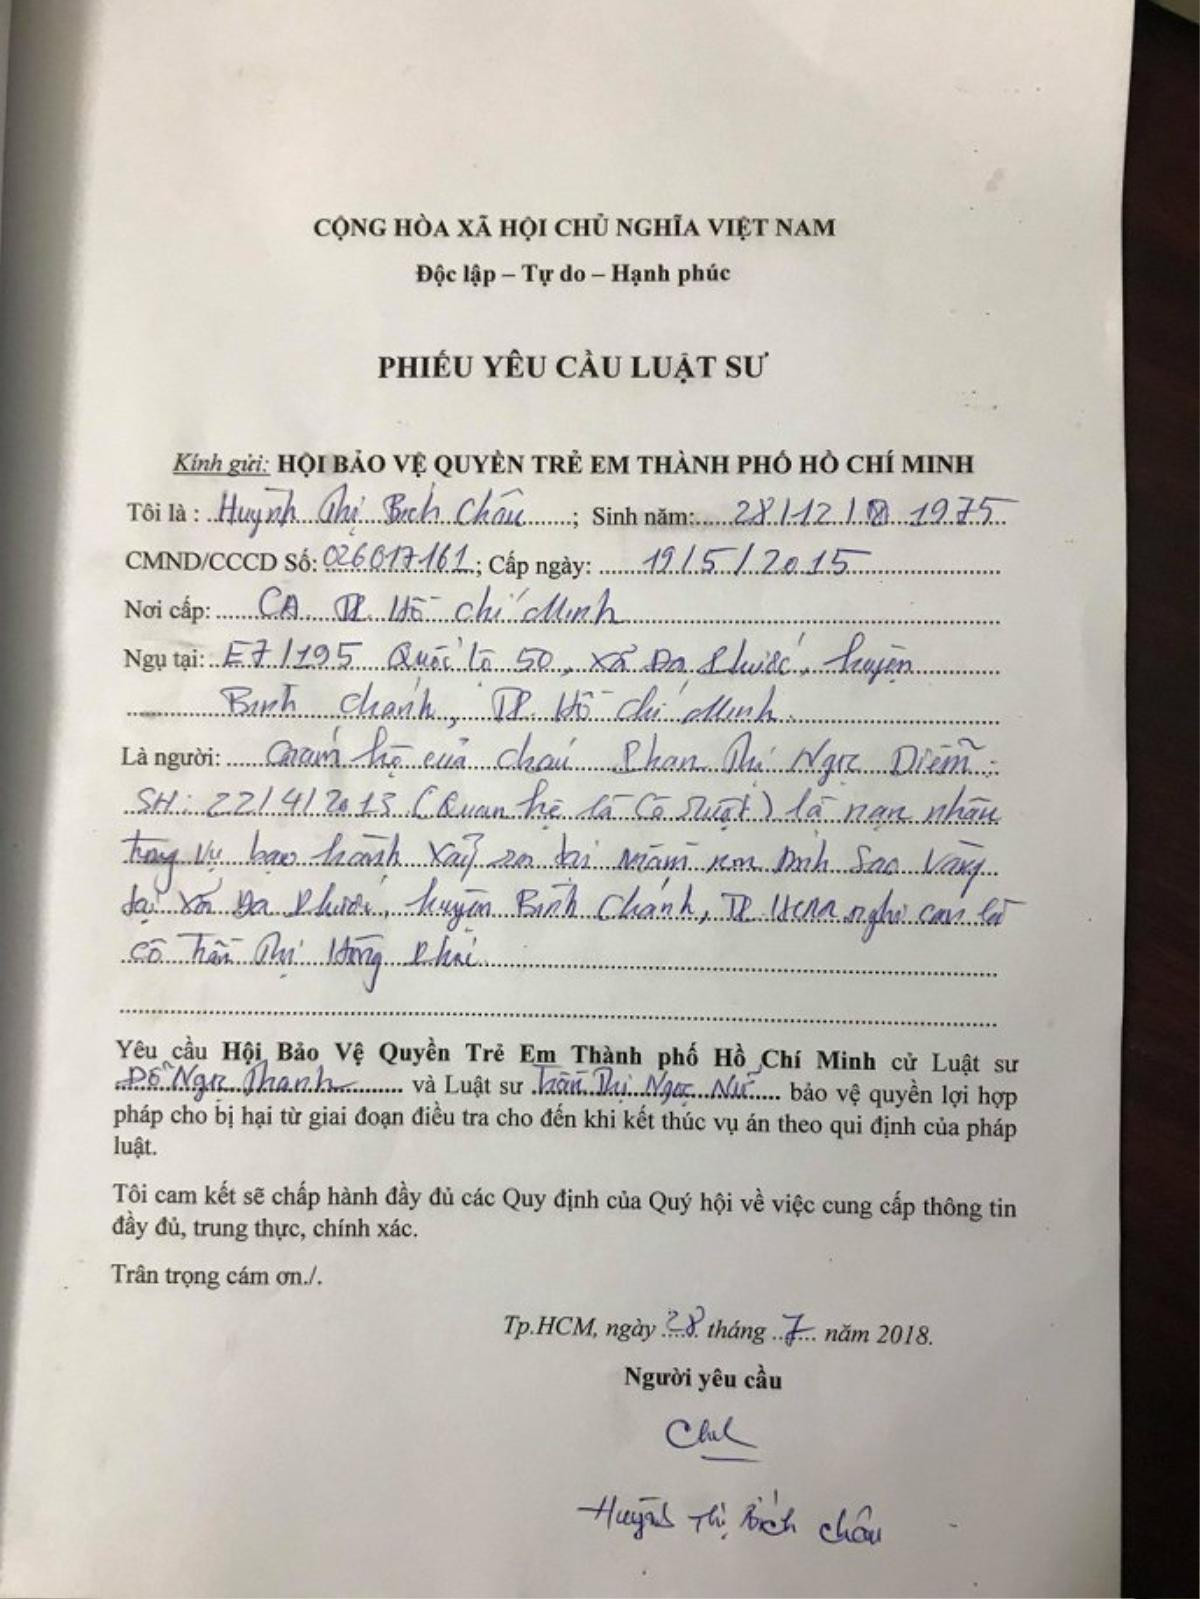 CỘNG HÒA XÃ HỘI CHỦ NGHĨA VIỆT NAM
Độc lập – Tự do – Hạnh phúc
PHIẾU YÊU CẦU LUẬT SƯ
Kính gửi: HỘI BẢO VỆ QUYỀN TRẺ EM THÀNH PHỐ HỒ CHÍ MINH
Tôi là : Huỳnh Thị Bích Châu; Sinh năm: 28/12/ 1975
CMND/CCCD Số: 026017161; Cấp ngày: 19/5/2015
Nơi cấp: CA TP. Hồ Chí Minh
Ngụ tại: E7/195 Quốc lộ 50, xã Đa Phước, huyện
Bình Chánh, TP. Hồ Chí Minh
Là người: Giám hộ của cháu Phan Thị Ngọc Diễm
SH: 22/4/2013 (Quan hệ là cô ruột) là nạn nhân
trong vụ bạo hành xảy ra tại mầm non Sao Vàng
tại xã Đa Phước, huyện Bình Chánh, TP. HCM nghi can là
cô Trần Thị Hồng
Yêu cầu Hội Bảo Vệ Quyền Trẻ Em Thành phố Hồ Chí Minh cử Luật sư
Đỗ Ngọc Thanh và Luật sư Trần Thị Ngọc Nữ bảo vệ quyền lợi hợp
pháp cho bị hại từ giai đoạn điều tra cho đến khi kết thúc vụ án theo qui định của pháp
luật.
Tôi cam kết sẽ chấp hành đầy đủ các Quy định của Quý hội về việc cung cấp thông tin
đầy đủ, trung thực, chính xác.
Trân trọng cám ơn./.
Tp.HCM, ngày 28 tháng 7 năm 2018.
Người yêu cầu
Huỳnh Thị Bích Châu